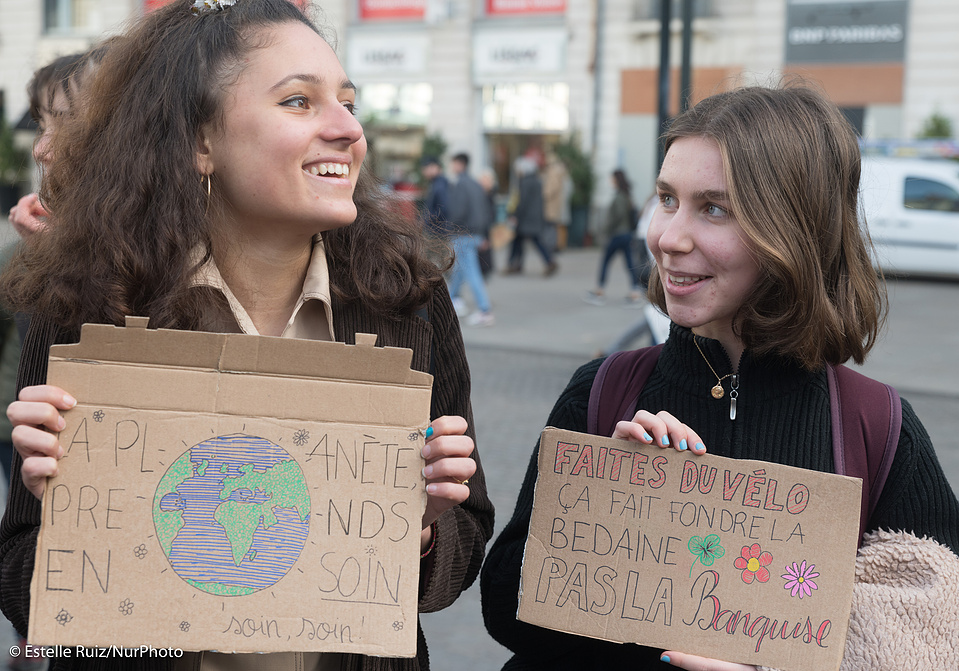 BNP PARIBAS
A PLANÈTE,
PRENDS
EN SOIN
soin, soin!
FAITES DU VÉLO
ÇA FAIT FONDRE LA
BEDAINE
PAS LA Banquise
© Estelle Ruiz/NurPhoto